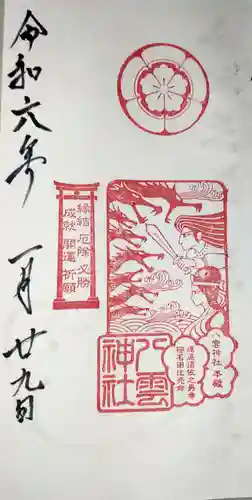 令和六年 一月廿九日
縁結 厄除 必勝
成就 開運 祈願
八雲神社 本殿
建速須佐之男命
櫛名田比売命
八雲
神社